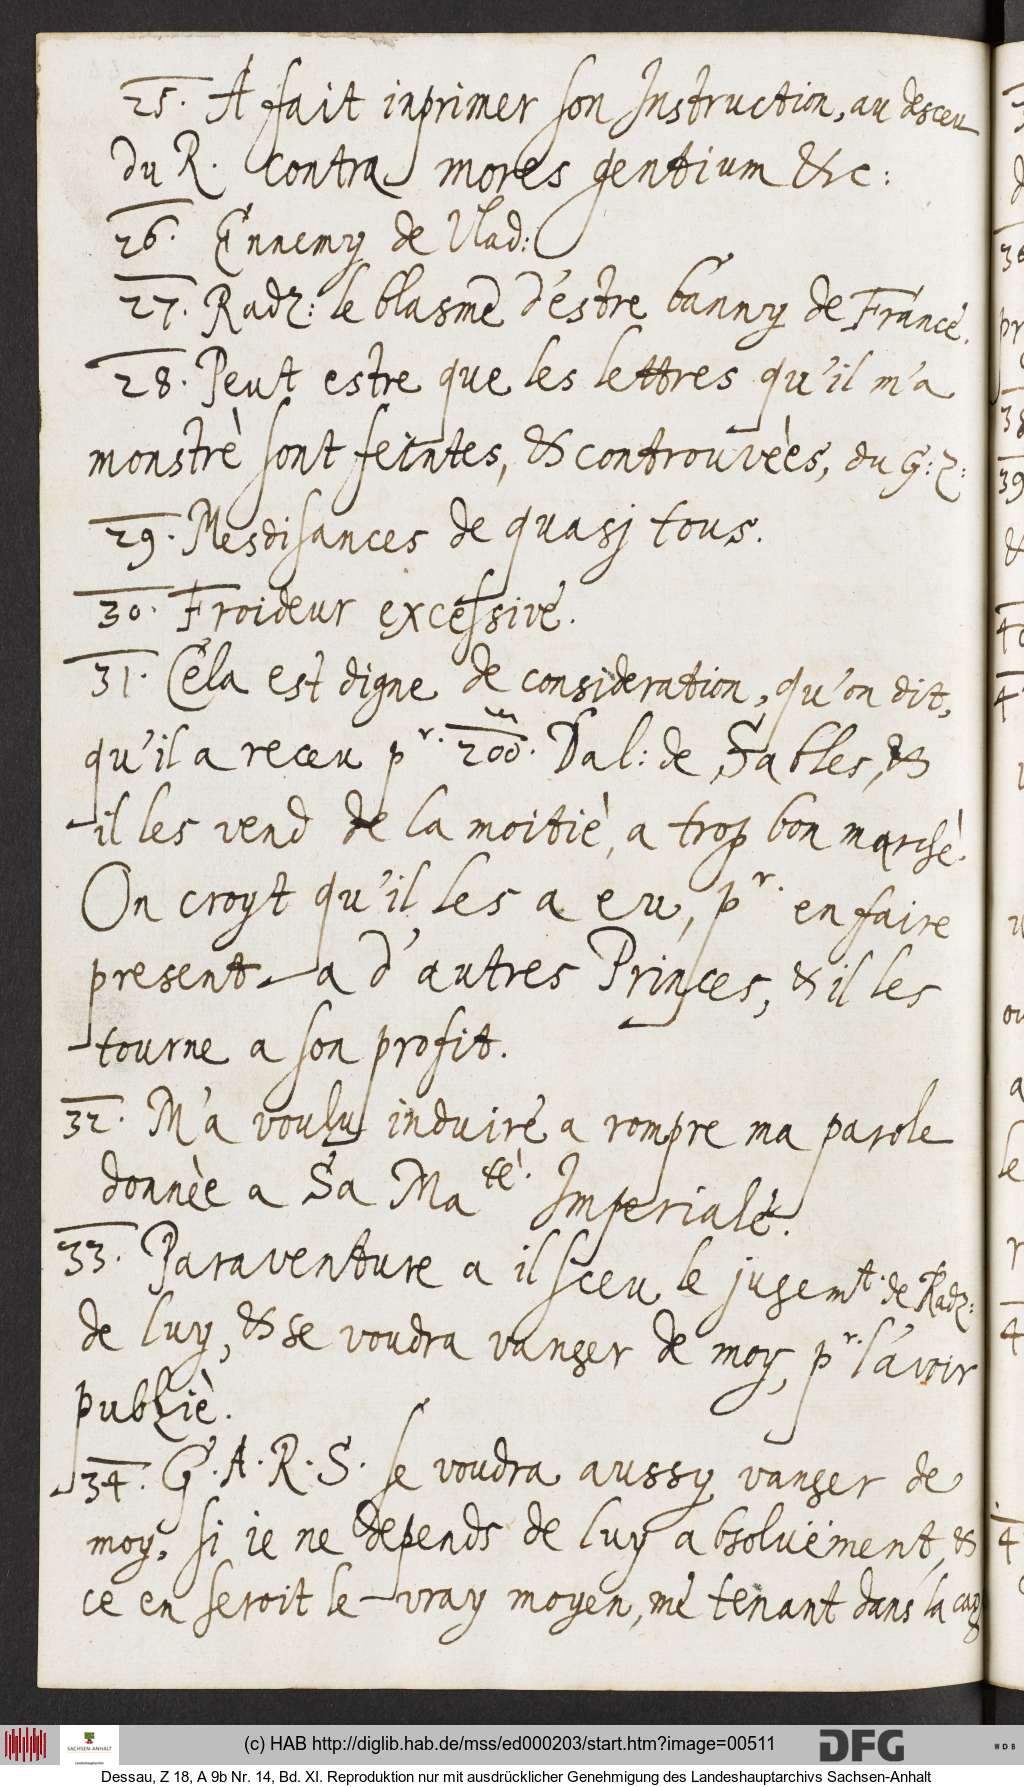 25. A fait inprimer son Instruction, au desceu
du R. contra mores gentium &c:
26. Ennemy de Vlad:
27. Radz: le blasme d'estre banny de France.
28. Peut estre que les lettres qu'il m'a
monstrè sont feintes, & controuvèes, du G: Z:
29. Mesdisances de quasj tous.
30. Froideur excessive.
31. Cela est digne de consideration, qu'on dit,
qu'il a receu pr. 200 m. Dal: de Sables, &
il les vend de la moitiè, a trop bon marchè.
On croyt qu'il les a eu, pr. en faire
present a d'autres Princes, & il les
tourne a son profit.
32. M'a voulu induire a rompre ma parole
donnèe a Sa Matè. Imperiale.
33. Paraventure a il sceu le jugemt. de Radz:
de luy, & se voudra vanger de moy, pr. l'avoir
publiè.
34. G. A. R. S. se voudra aussy vanger de
moy, si ie ne depends de luy absoluëment, &
ce en seroit le vray moyen, me tenant dans la cag
(c) HAB http://diglib.hab.de/mss/ed000203/start.htm?image=00511
SACHSEN-ANHALT
DFG
WDB
Dessau, Z 18, A 9b Nr. 14, Bd. XI. Reproduktion nur mit ausdrücklicher Genehmigung des Landeshauptarchivs Sachsen-Anhalt